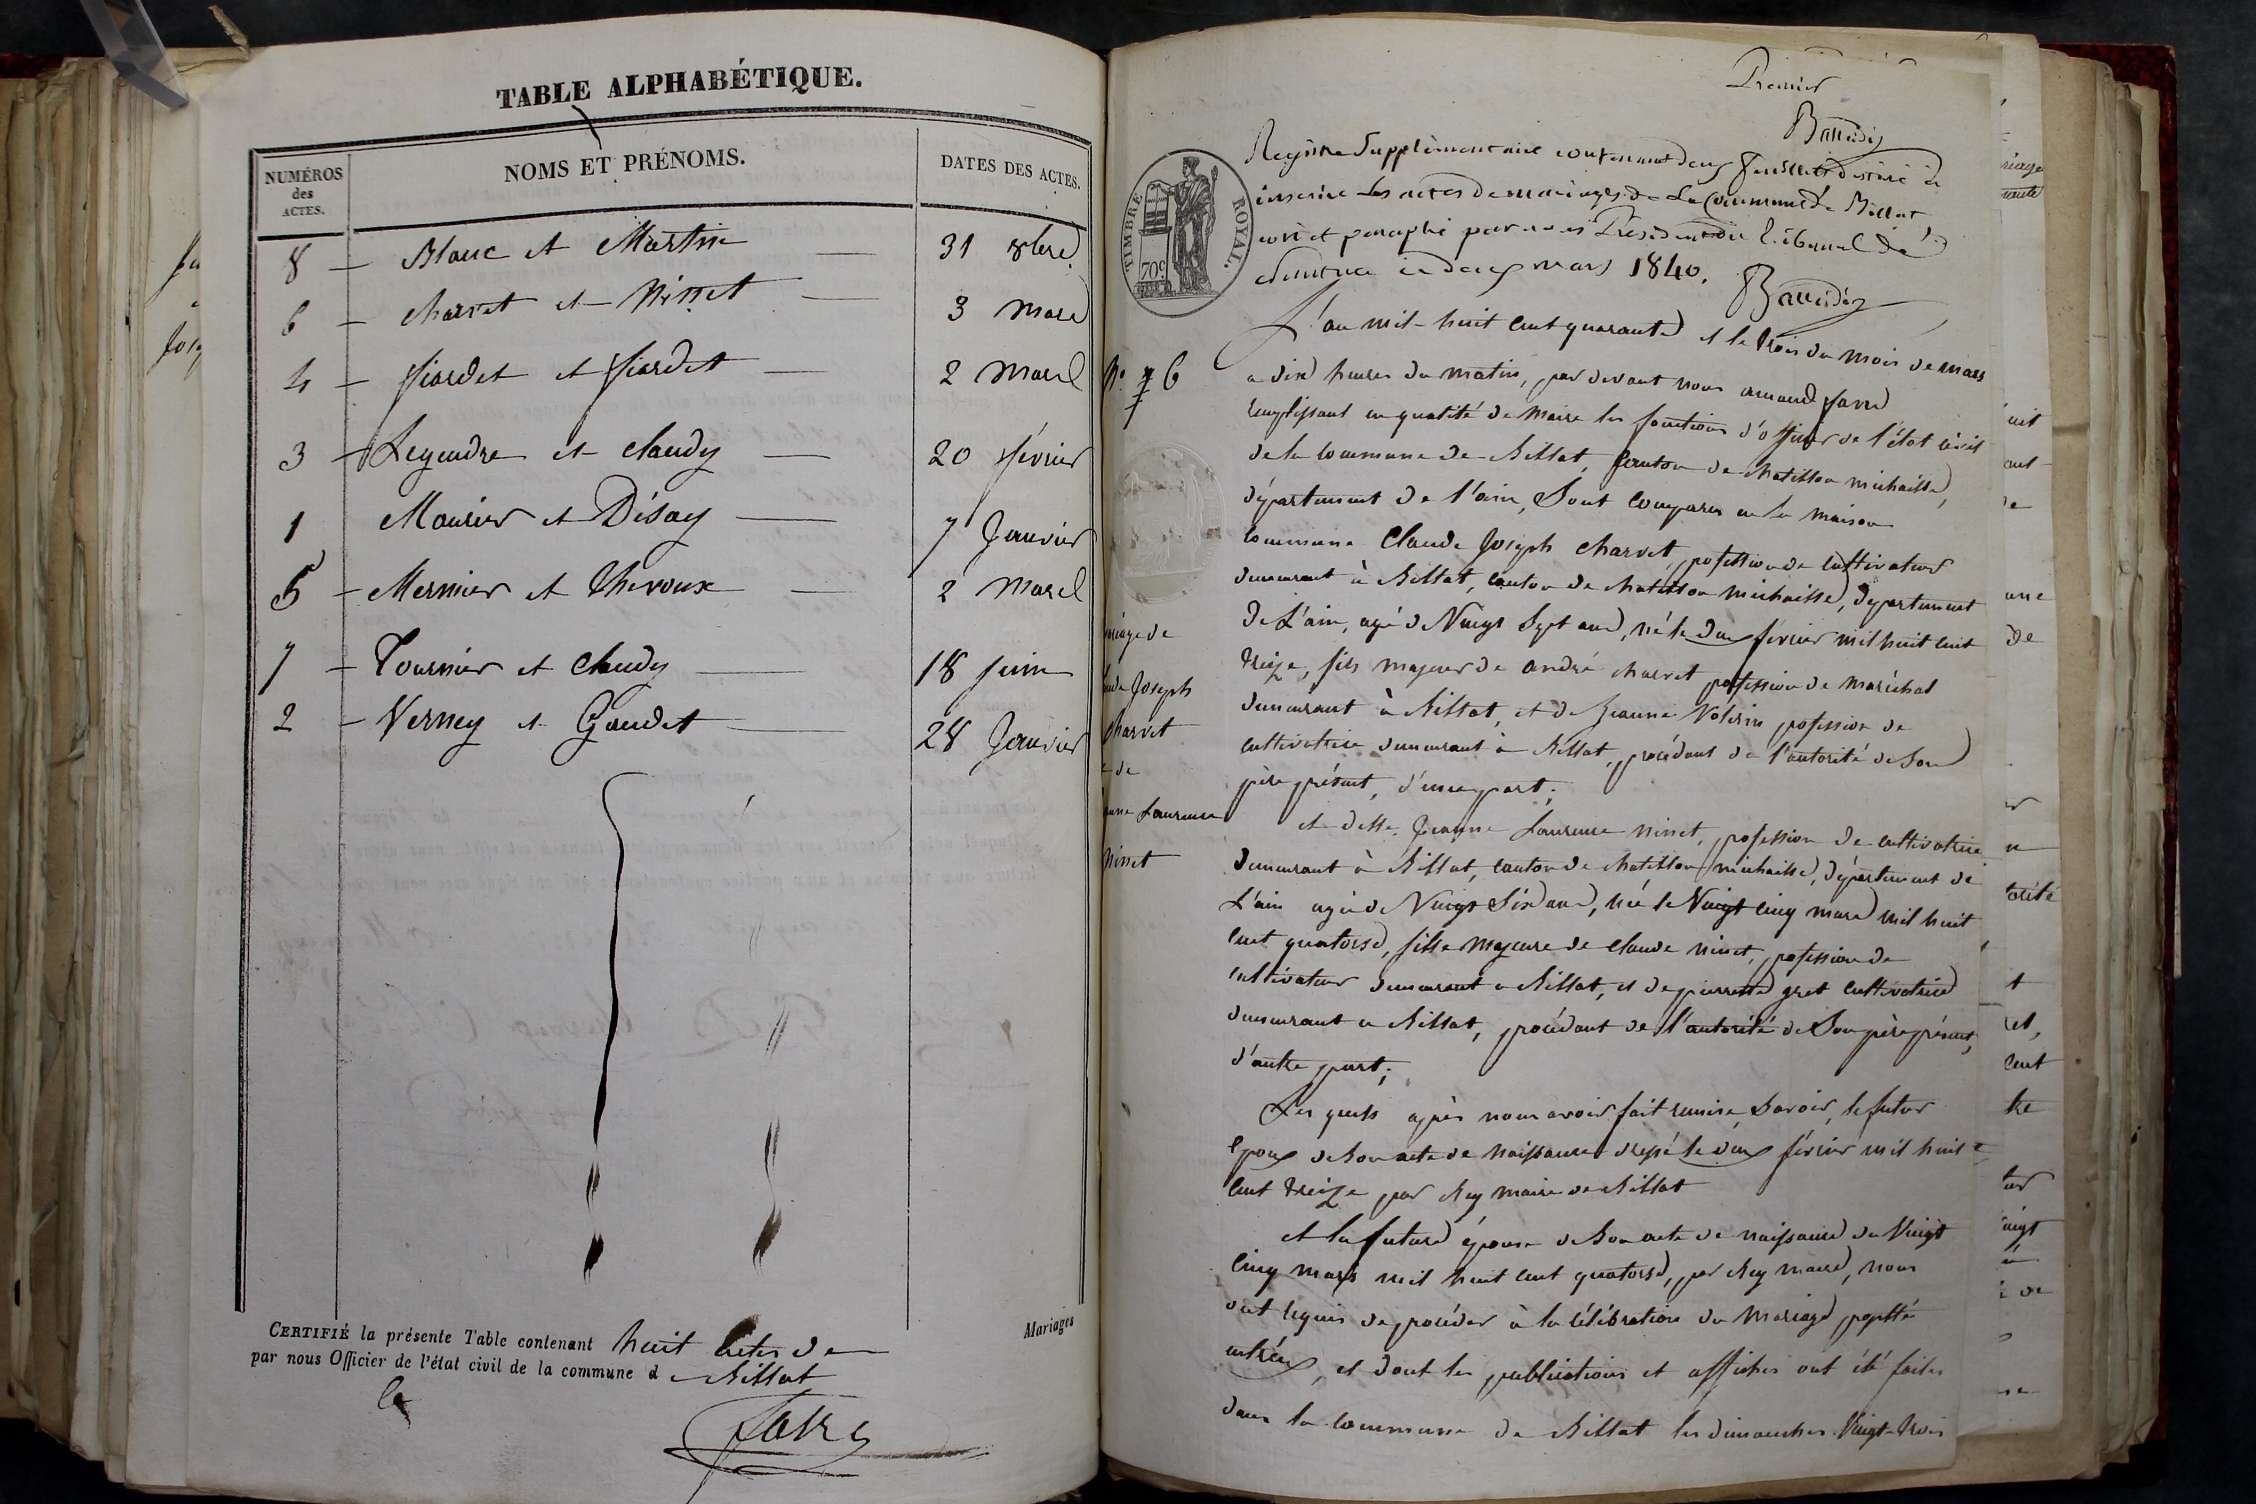 TABLE ALPHABÉTIQUE.
NUMÉROS des ACTES.
NOMS ET PRÉNOMS.
DATES DES ACTES.
8 — Blanc et Martin — 31 8bre
6 — Charvet et Ninet — 3 Mars
4 — fiardet et fiardet — 2 Mars
3 — Legendre et Claudy — 20 février
1 Mourier et Désay — 7 Janvier
5 — Mermier et Thevoux — 2 Mars
7 — Tournier et Claudy — 18 Juin
2 — Verney et Gaudet — 28 Janvier
CERTIFIÉ la présente Table contenant huit actes de Mariages
par nous Officier de l'état civil de la commune d Billat
le
favre
Premier
TIMBRE ROYAL.
70c
Registre Supplémentaire contenant deux feuillets destiné à
inscrire les actes de mariages de la Commune de Billat
coté et paraphé par nous Président du Tribunal de
ce deux mars 1840.
L'an mil-huit cent quarante et le trois du mois de mars
N° 7 6
a dix heures du matin, par devant nous armand favre
remplissant en qualité de Maire les fonctions d'officier de l'état civil
de la commune de Billat, canton de chatillon michaille,
département de l'ain, Sont comparus en la maison
commune Claude Joseph Charvet, profession de cultivateur
demeurant à Billat, canton de chatillon michaille, département
de L'ain, agé de Vingt Sept ans, né le deux février mil huit cent
treize, fils majeur de andré charvet profession de maréchal
demeurant à Billat, et de Jeanne profession de
cultivatrice demeurant à Billat, procédant de l'autorité de Son
père présent, d'une part;
mariage de
Claude Joseph
Charvet
et de
Jeanne Laurence
Ninet
et delle. Jeanne Laurence ninet, profession de cultivatrice
demeurant à Billat, canton de chatillon michaille, département de
L'ain agée de Vingt Six ans, née le Vingt cinq mars mil huit
cent quatorse, fille majeure de claude ninet, profession de
cultivateur demeurant a Billat, et de pierrette gret cultivatrice
demeurant a Billat, procédant de l'autorité de Son père présent,
d'autre part;
Les quels après nous avoir fait remise, Savoir, le futur
époux de Son acte de naissance dressé le deux février mil huit
cent treize par Rey maire de Billat
et la future épouse de Son acte de naissance du Vingt
cinq mars mil huit cent quatorse, par Rey maire, nous
ont requis de procéder à la célébration du Mariage projetté
entr'eux, et dont les publications et affiches ont été faites
dans la commune de Billat les dimanches Vingt-trois